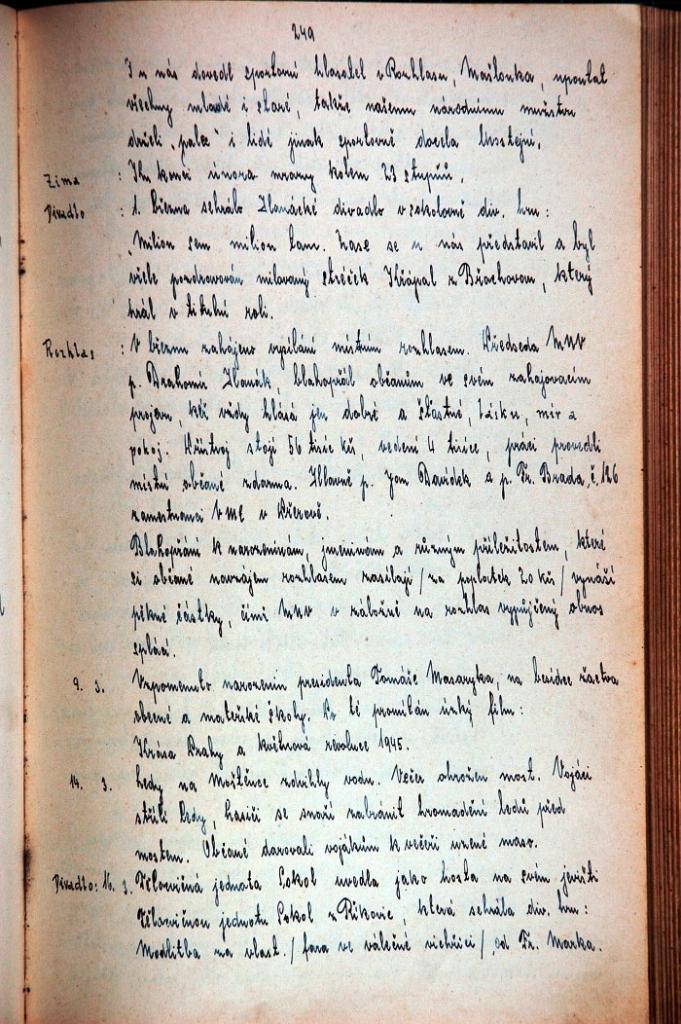 249
I u nás dovedl sportovní hlasatel v Rozhlasu, Mašlonka, upoutat
všechny mladé i staré, takže našemu národnímu mužstvu
drželi „palce" i lidé jinak sportovně docela lhostejní.
Zima : Ku konci února mrazy kolem 23 stupňů.
Divadlo : 1. března sehrálo Hanácké divadlo v sokolovně div. hru:
„Milion sem milion tam. Zase se u nás představil a byl
vřele pozdravován milovaný stréček Křópal z Břochovan, který
hrál v titulní roli.
Rozhlas : V březnu zahájeno vysílání místním rozhlasem. Předseda MNV
p. Drahomír Hanák, blahopřál občanům ve svém zahajovacím
projevu, kéž vždy hlásá jen dobré a šťastné, lásku, mír a
pokoj. Přístroj stojí 56 tisíc Kčs, vedení 4 tisíce, práci provedli
místní občané zdarma. Hlavně p. Jan Davídek a p. Fr. Brada, č. 126
zamestnanci VME v Přerově.
Blahopřání k narozeninám, jmeninám a různým příležitostem, které
si občané navzájem rozhlasem zasílají /za poplatek 20 Kčs/ vynáší
pěkné částky, čímž MNV v záložně na rozhlas vypůjčený obnos
splácí.
9. 3. Vzpomenuto narozenin presidenta Tomáše Masaryka, na besídce žactva
obecné a mateřské školy. Po té promítán úzký film:
Krása Prahy a květnová revoluce 1945.
14. 3. Ledy na Moštěnce zdvihly vodu. Večer ohrožen most. Vojáci
střílí ledy, hasiči se snaží zabránit hromadění ledů před
mostem. Občané darovali vojákům k večeři uzené maso.
Divadlo: 16. 3. Tělocvičná jednota Sokol uvedla jako hosta na svém jevišti
Tělocvičnou jednotu Sokol z Říkovic, která sehrála div. hru:
Modlitba za vlast. /fara ve válečné vichřici/, od Fr. Marka.